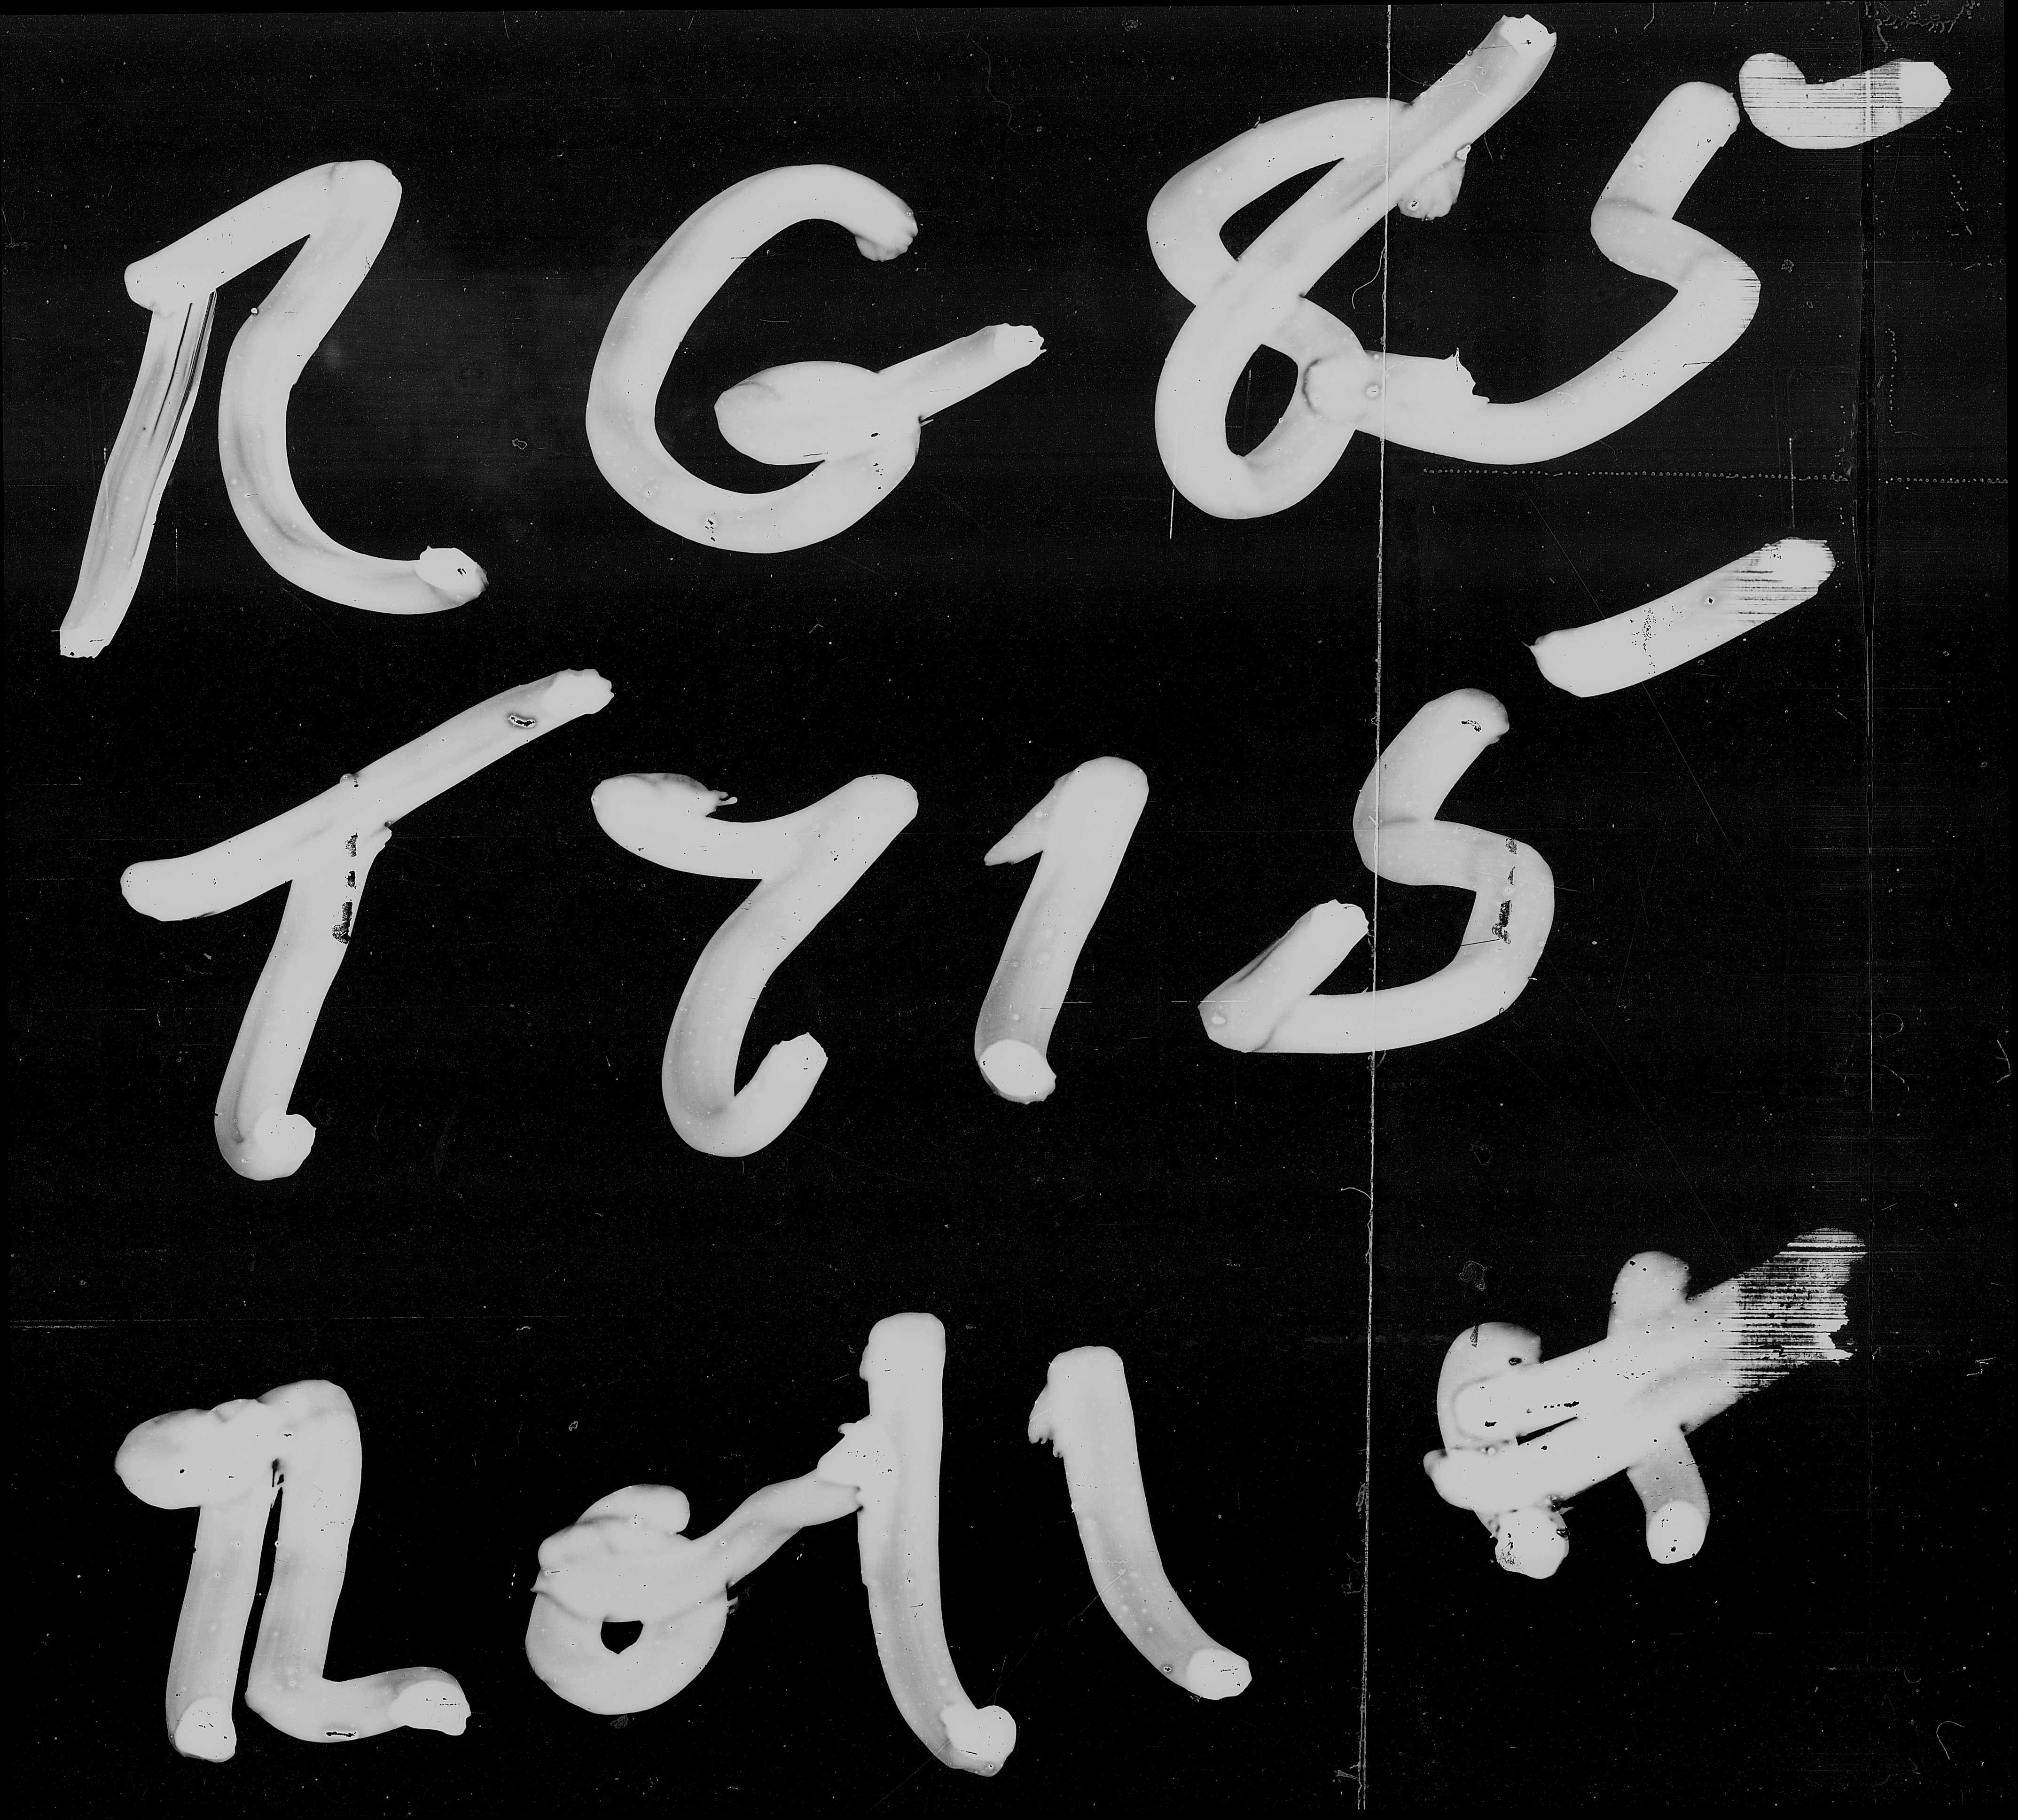 RG 85
T715
Roll #